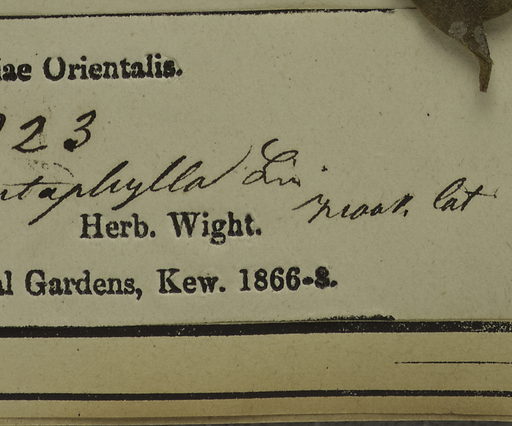 iae Orientalis.
23
ntaphylla Lin
Herb. Wight.
al Gardens, Kew. 1866-8.